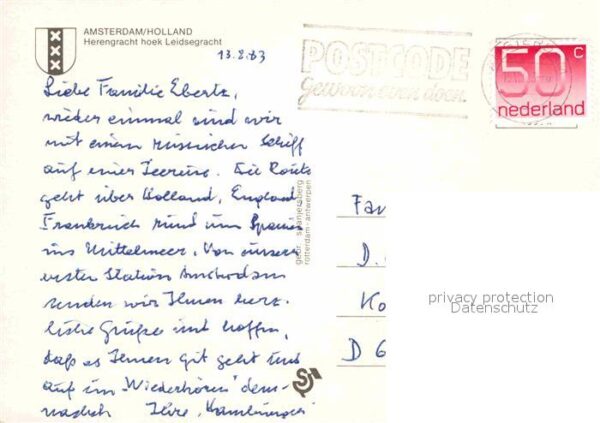 AMSTERDAM/HOLLAND
Herengracht hoek Leidsegracht
13.8.83
POSTCODE
Gewoon even doen.
50 c
nederland
Liebe Familie Ebertz,
wieder einmal sind wir
mit einem russischen Schiff
auf einer Seereise. Die Route
geht über Holland, England
Frankreich rund um Spanien
ins Mittelmeer. Von unserer
ersten Station Amsterdam
senden wir Ihnen herz-
liche Grüße und hoffen,
daß es Ihnen gut geht und
auf ein "Wiederhören" dem-
nächst Ihre "Hamburger"
gebr. spanjersberg
rotterdam-antwerpen
Fam
D.
Ko
D 6
privacy protection
Datenschutz